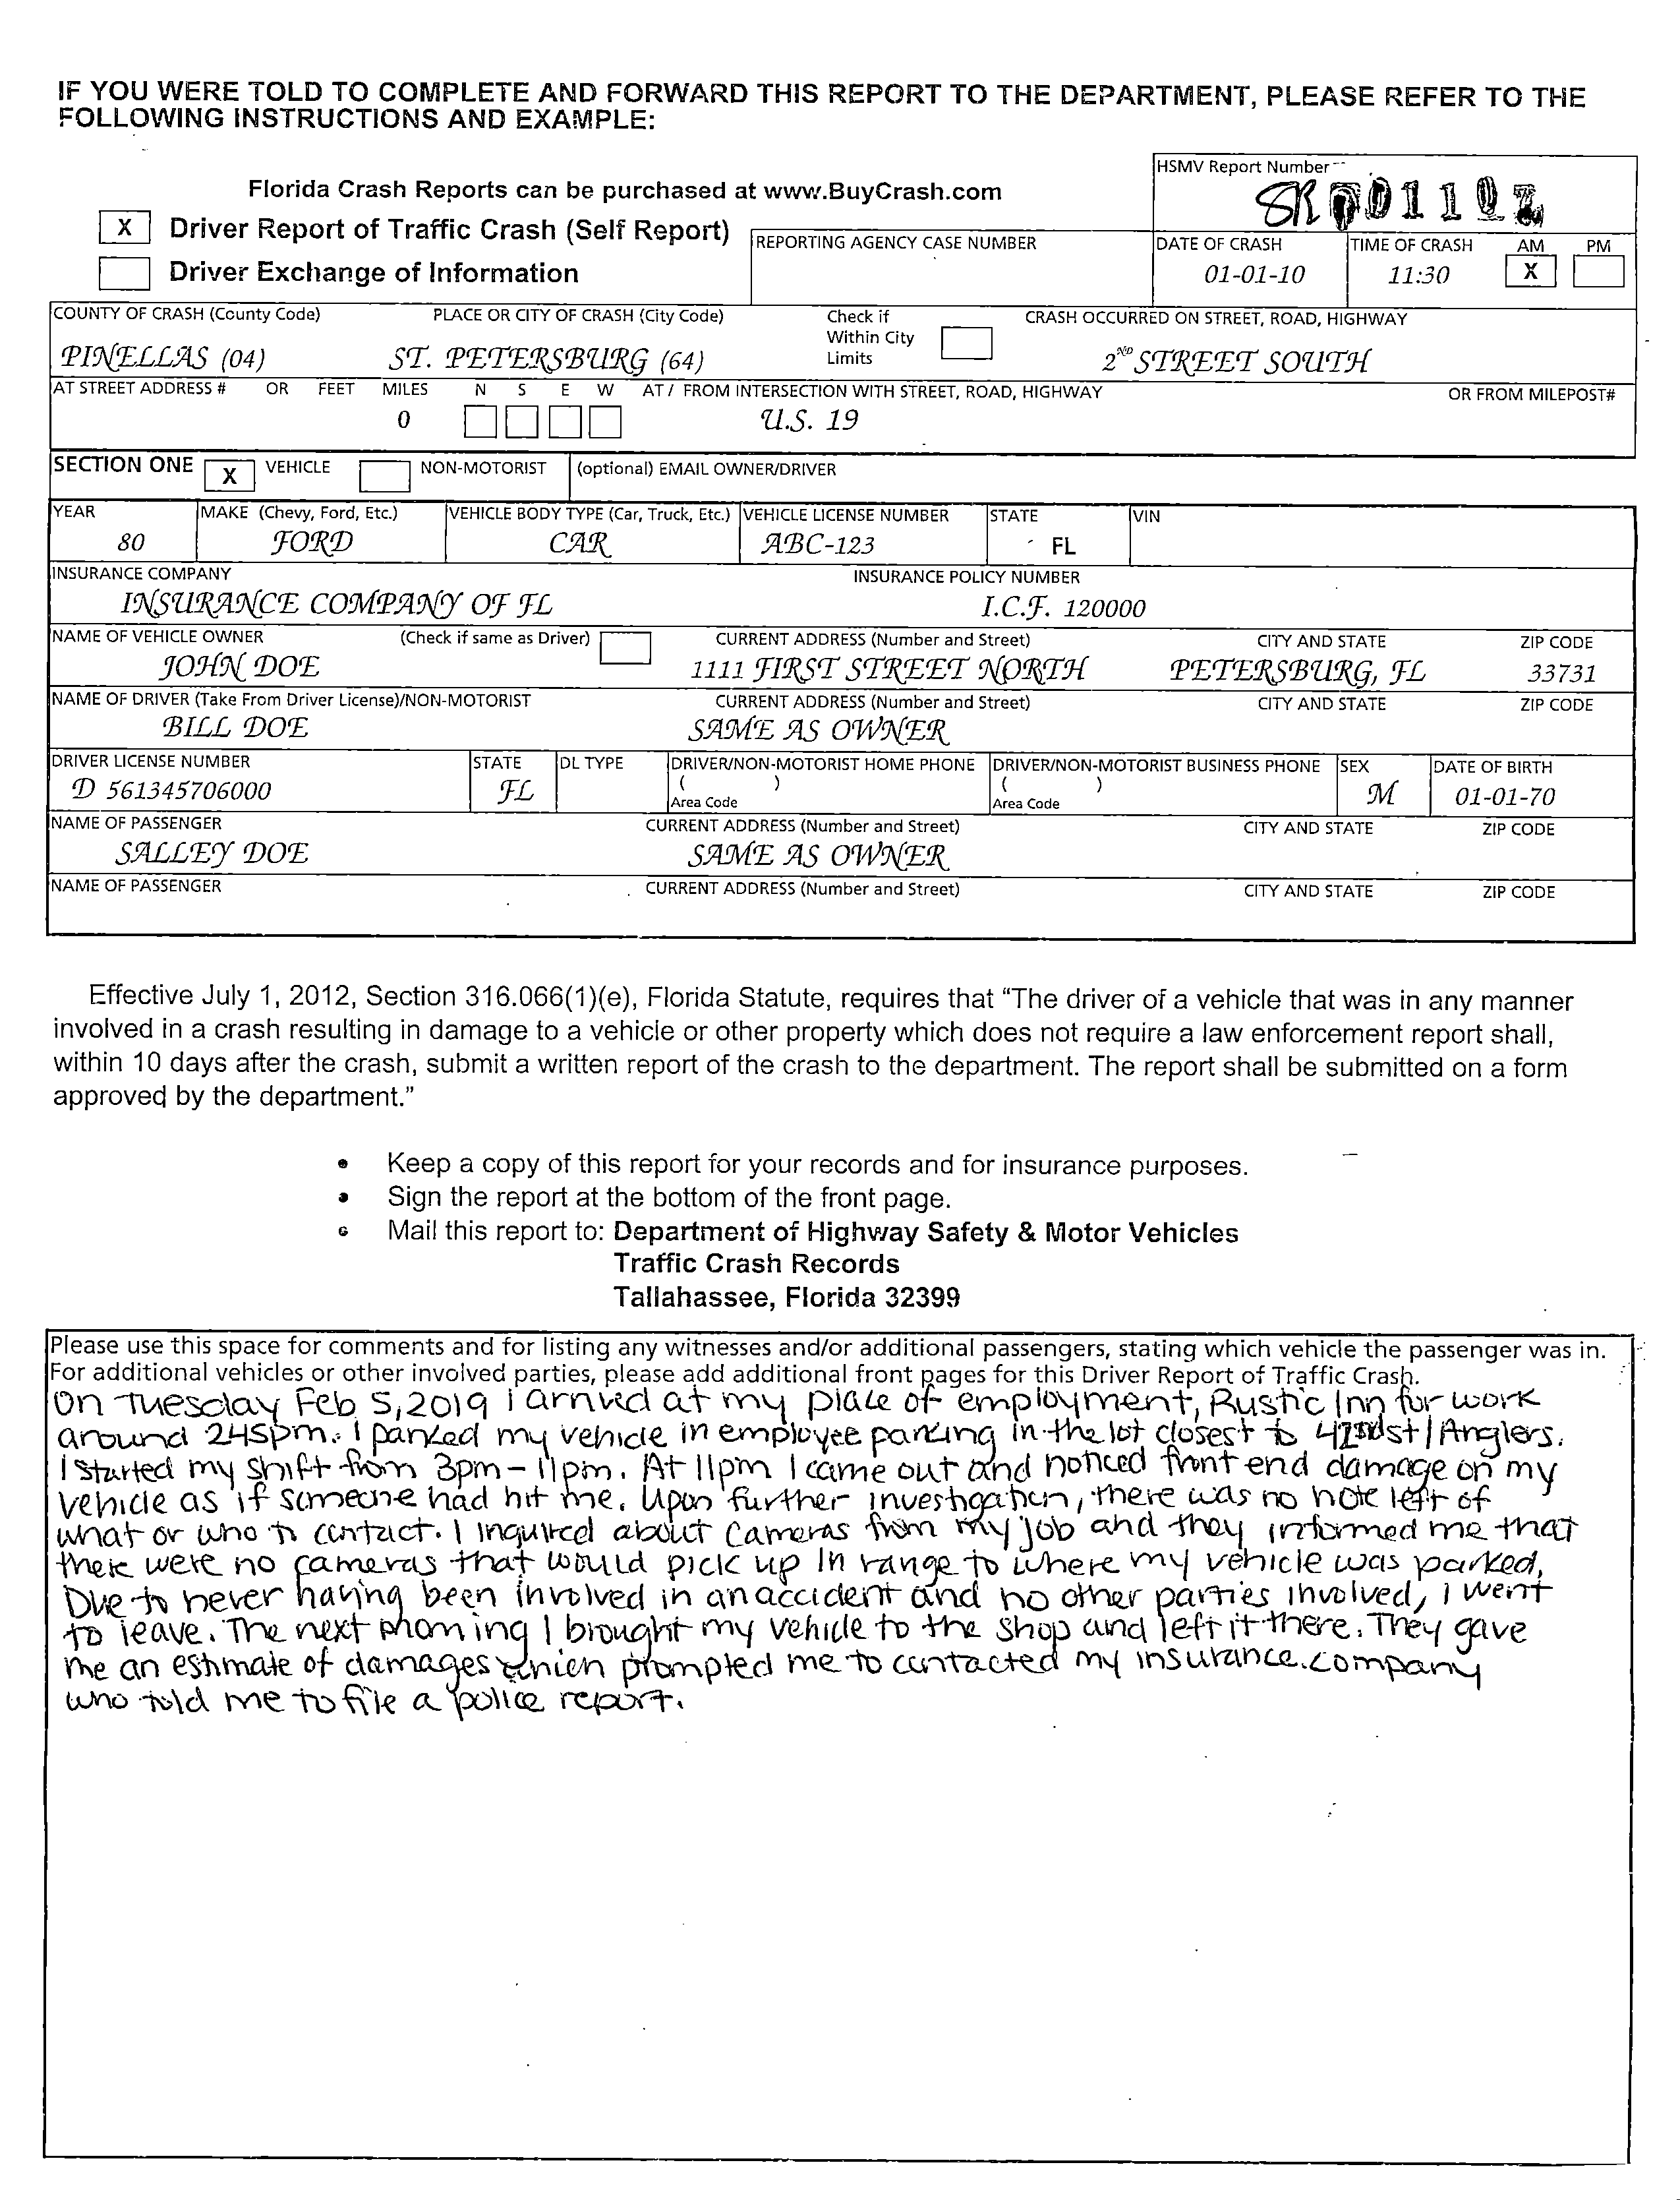 IF YOU WERE TOLD TO COMPLETE AND FORWARD THIS REPORT TO THE DEPARTMENT, PLEASE REFER TO THE
FOLLOWING INSTRUCTIONS AND EXAMPLE:
HSMV Report Number
Florida Crash Reports can be purchased at www.BuyCrash.com
X Driver Report of Traffic Crash (Self Report)
Driver Exchange of Information
REPORTING AGENCY CASE NUMBER
DATE OF CRASH TIME OF CRASH AM PM
01-01-10 11:30 X
COUNTY OF CRASH (County Code) PLACE OR CITY OF CRASH (City Code) Check if Within City Limits CRASH OCCURRED ON STREET, ROAD, HIGHWAY
PINELLAS (04) ST. PETERSBURG (64) 2ND STREET SOUTH
AT STREET ADDRESS # OR FEET MILES N S E W AT / FROM INTERSECTION WITH STREET, ROAD, HIGHWAY OR FROM MILEPOST#
0 U.S. 19
SECTION ONE X VEHICLE NON-MOTORIST (optional) EMAIL OWNER/DRIVER
YEAR MAKE (Chevy, Ford, Etc.) VEHICLE BODY TYPE (Car, Truck, Etc.) VEHICLE LICENSE NUMBER STATE VIN
80 FORD CAR ABC-123 FL
INSURANCE COMPANY INSURANCE POLICY NUMBER
INSURANCE COMPANY OF FL I.C.F. 120000
NAME OF VEHICLE OWNER (Check if same as Driver) CURRENT ADDRESS (Number and Street) CITY AND STATE ZIP CODE
JOHN DOE 1111 FIRST STREET NORTH PETERSBURG, FL 33731
NAME OF DRIVER (Take From Driver License)/NON-MOTORIST CURRENT ADDRESS (Number and Street) CITY AND STATE ZIP CODE
BILL DOE SAME AS OWNER
DRIVER LICENSE NUMBER STATE DL TYPE DRIVER/NON-MOTORIST HOME PHONE DRIVER/NON-MOTORIST BUSINESS PHONE SEX DATE OF BIRTH
D 561345706000 FL ( ) ( ) M 01-01-70
Area Code Area Code
NAME OF PASSENGER CURRENT ADDRESS (Number and Street) CITY AND STATE ZIP CODE
SALLEY DOE SAME AS OWNER
NAME OF PASSENGER CURRENT ADDRESS (Number and Street) CITY AND STATE ZIP CODE
Effective July 1, 2012, Section 316.066(1)(e), Florida Statute, requires that “The driver of a vehicle that was in any manner
involved in a crash resulting in damage to a vehicle or other property which does not require a law enforcement report shall,
within 10 days after the crash, submit a written report of the crash to the department. The report shall be submitted on a form
approved by the department.”
• Keep a copy of this report for your records and for insurance purposes.
• Sign the report at the bottom of the front page.
• Mail this report to: Department of Highway Safety & Motor Vehicles
Traffic Crash Records
Tallahassee, Florida 32399
Please use this space for comments and for listing any witnesses and/or additional passengers, stating which vehicle the passenger was in.
For additional vehicles or other involved parties, please add additional front pages for this Driver Report of Traffic Crash.
On Tuesday Feb 5, 2019 I arrived at my place of employment, Rustic Inn for work
around 245pm. I parked my vehicle in employee parking in the lot closest to 42nd st | Anglers.
I started my shift from 3pm-11pm. At 11pm I came out and noticed front end damage on my
vehicle as if someone had hit me. Upon further investigation, there was no note left of
what or who to contact. I inquired about cameras from my job and they informed me that
there were no cameras that would pick up in range to where my vehicle was parked.
Due to never having been involved in an accident and no other parties involved, I went
to leave. The next morning I brought my vehicle to the shop and left it there. They gave
me an estimate of damages which prompted me to contacted my insurance company
who told me to file a police report.